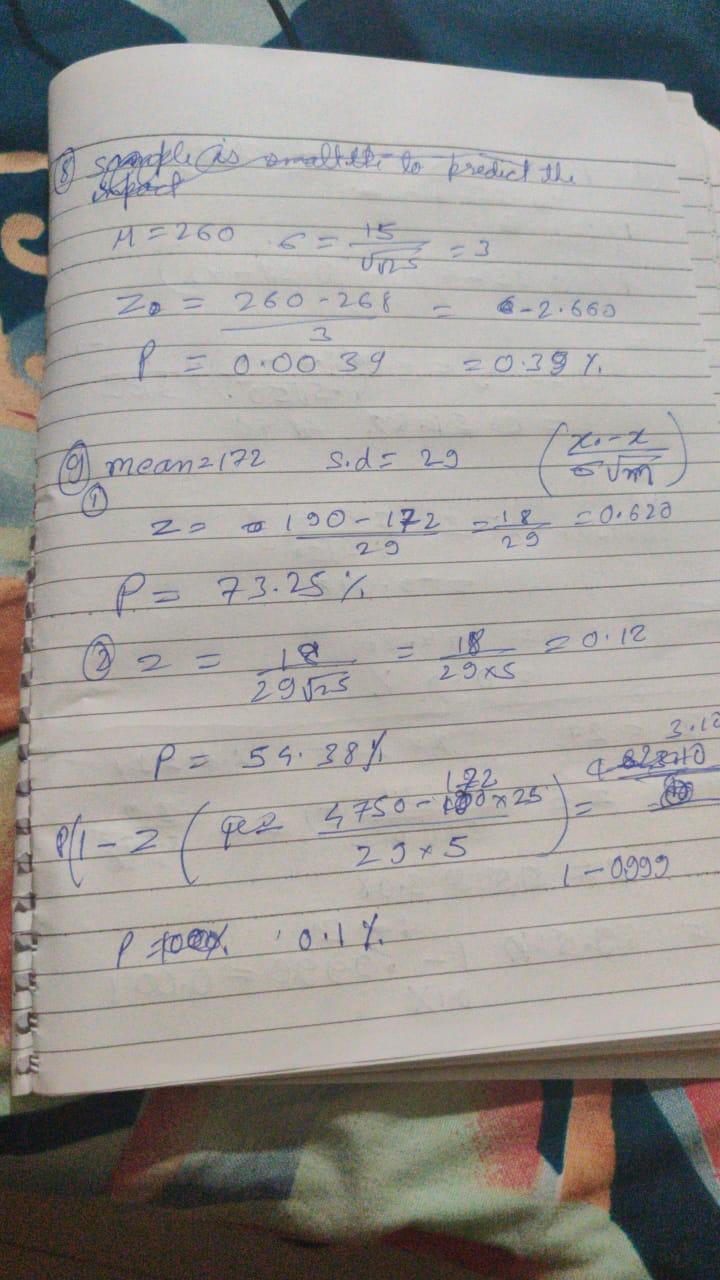 ⑧ sample is small to predict the impact
M = 260 6 = 15/√25 = 3
Z0 = 260 - 268 / 3 = -2.660
P = 0.0039 = 0.39 %
⑨ mean = 172 S.d = 29 (x0 - x / σ√m)
① Z = 190 - 172 / 29 = 18/29 = 0.620
P = 73.25 %
② z = 18 / 29√25 = 18 / 29×5 = 0.12
P = 54.38 %
3.12
P(1 - Z ( 4750 - 172 × 25 / 29 × 5 ) =
1 - 0.999
P = 0.1 %